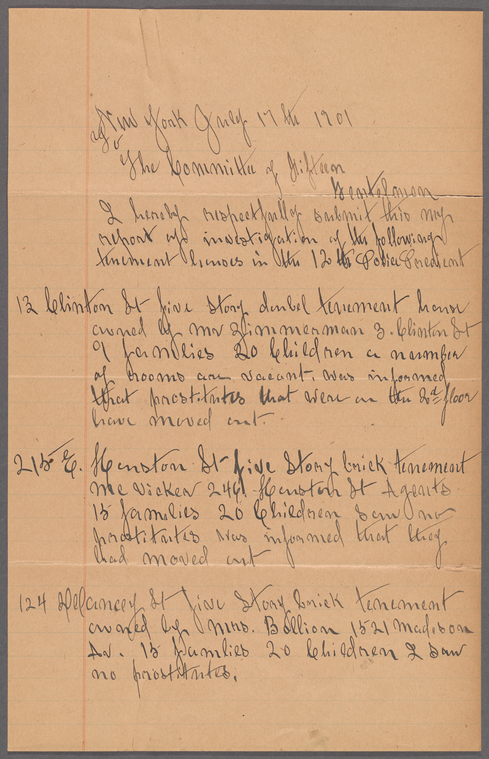 New York July 17th 1901
To
The Committee of Fifteen
Gentelmen
I hereby respectfully submit this my
report of investigation of the following
tenement houses in the 12th Police Precinct
13 Clinton St five Story dubel tenement house
owned by Mr Zimmerman 3. Clinton St
9 families 20 Children a number
of rooms are vacant. was informed
that prostitutes that were on the 3d floor
have moved out.
215 E. Houston St five Story brick tenement
Mc Vicker 246 Houston St Agents
15 families 20 Children Saw no
prostitutes was informed that they
had moved out
124 Delancey St five Story brick tenement
owned by Mrs. Bollion 1521 Madison
Av. 15 families 20 Children I Saw
no prostitutes.